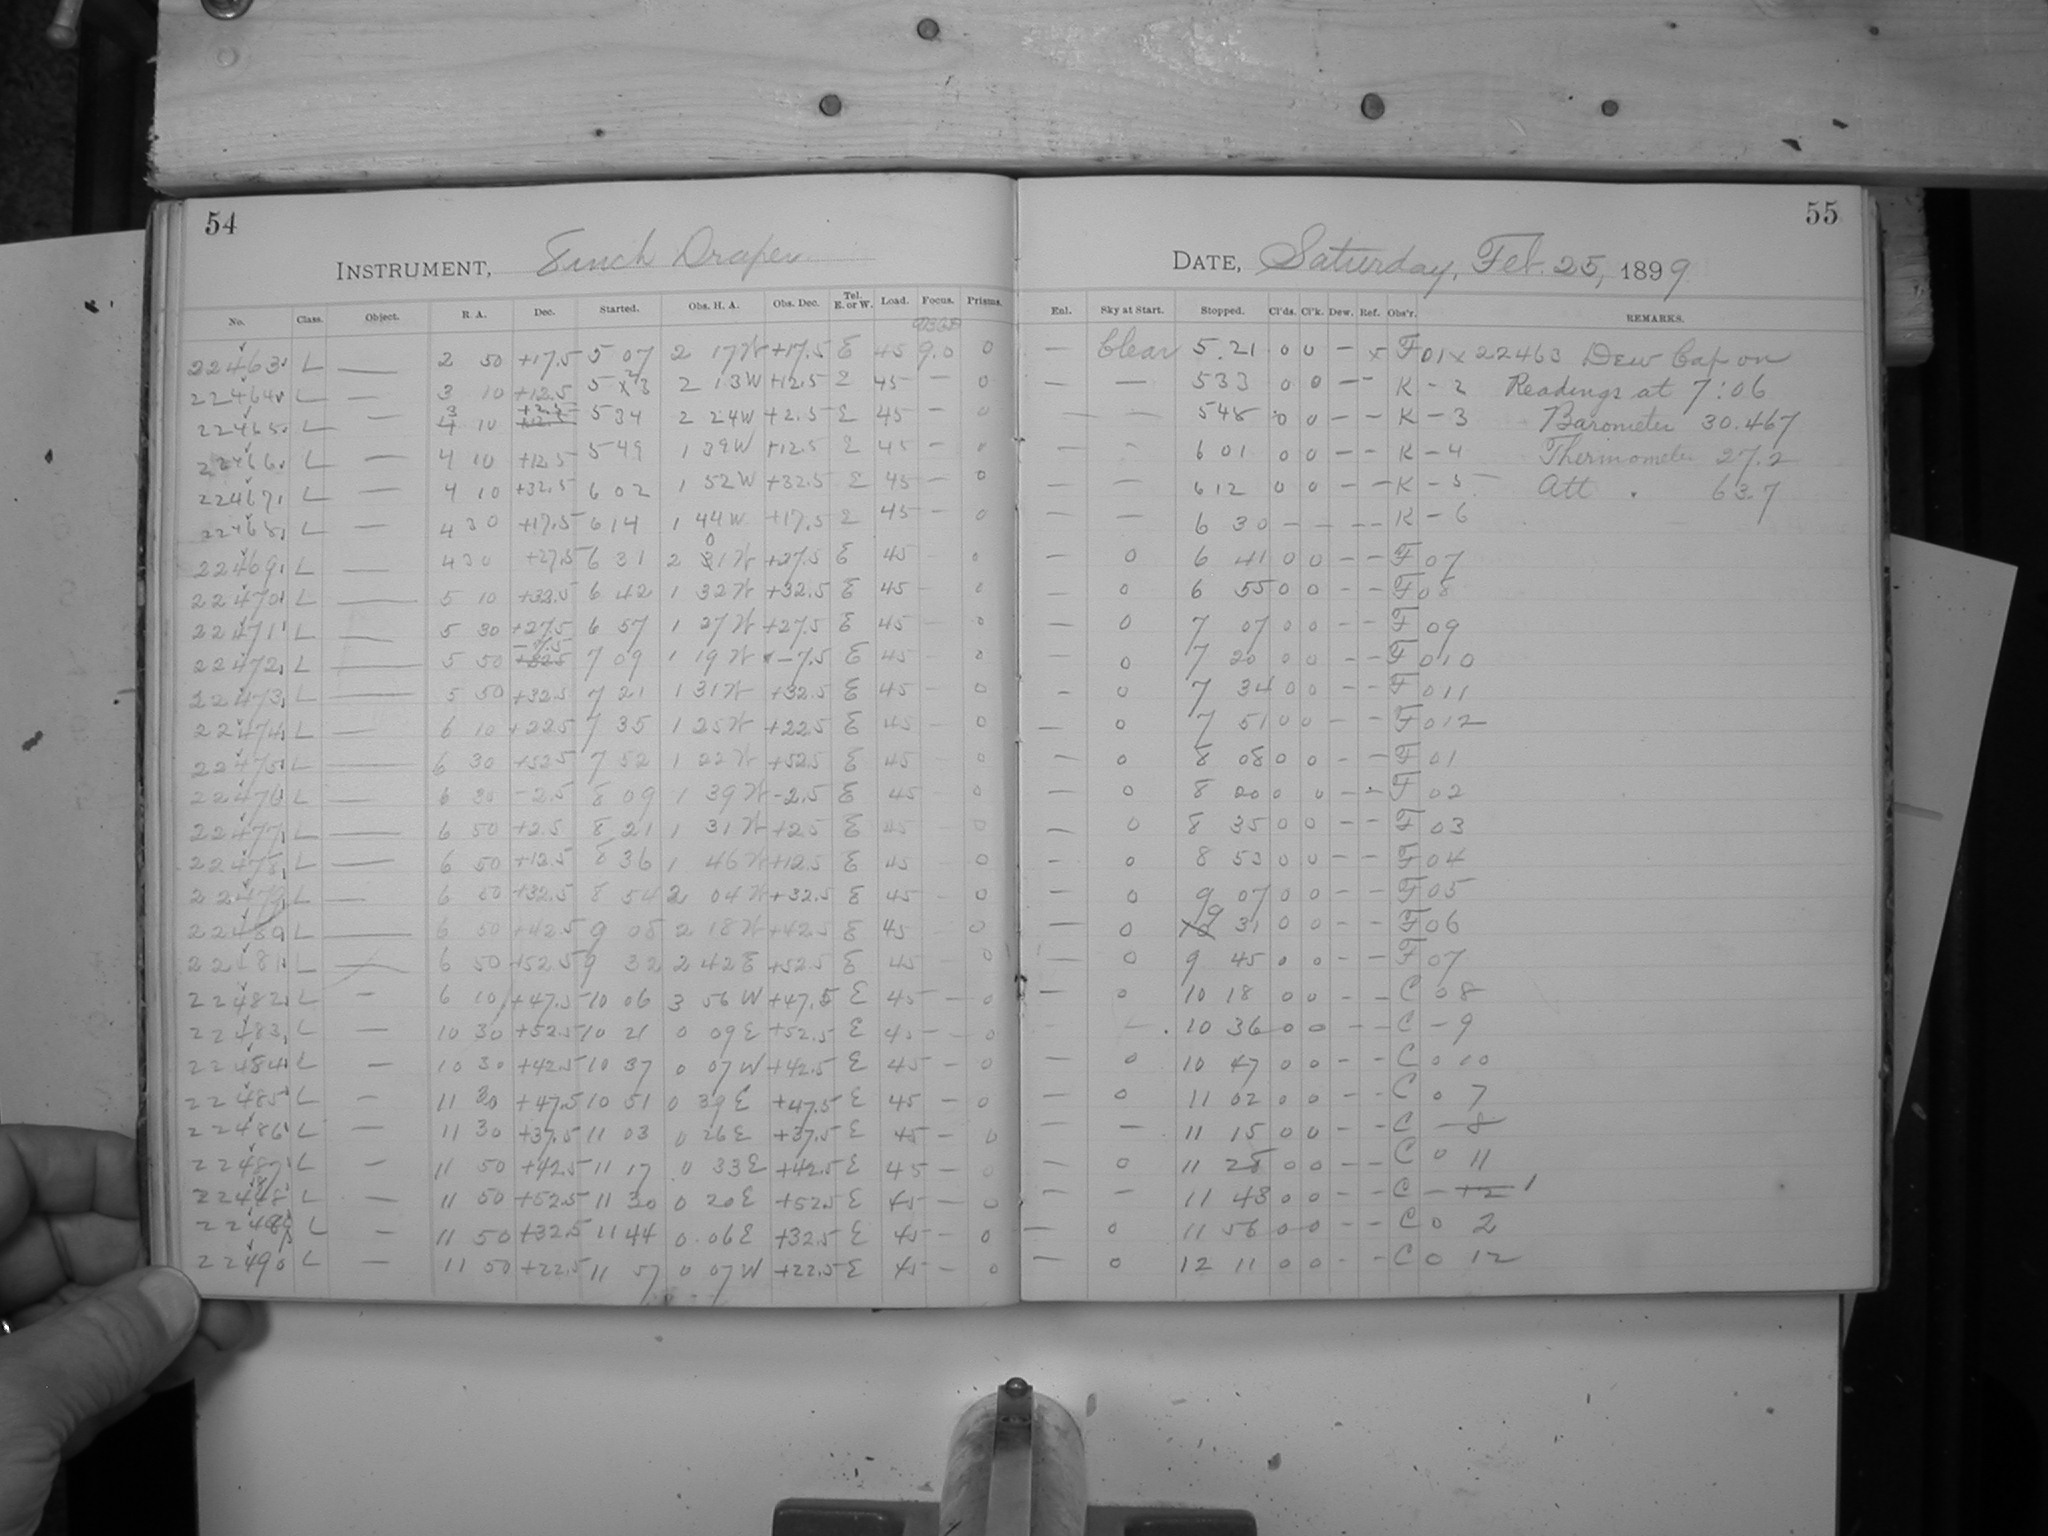 54
55
INSTRUMENT, 8 inch Draper.
DATE, Saturday, Feb. 25, 1899
No. Class. Object. R. A. Dec. Started. Obs. H. A. Obs. Dec. Tel. E. or W. Load. Focus. Prisms. Enl. Sky at Start. Stopped. Cl'ds. Cl'k. Dew. Ref. Obs'r. REMARKS.
22463 L — 2 50 +17.5 5 07 2 17 W +17.5 E 45 9.0 0 — Clear 5.21 0 0 — x F 01 x 22463 Dew Cap on
22464 L — 3 10 +12.5 5 23 2 13 W +12.5 E 45 — 0 — — 5 33 0 0 — — K — 2 Readings at 7:06
22465 L — 3 10 +2.5 5 34 2 24 W +2.5 E 45 — 0 — — 5 48 0 0 — — K — 3 Barometer 30.467
22466 L — 4 10 +12.5 5 49 1 39 W +12.5 E 45 — 0 — — 6 01 0 0 — — K — 4 Thermometer 27.2
22467 L — 4 10 +32.5 6 02 1 52 W +32.5 E 45 — 0 — — 6 12 0 0 — — K — 5 Att . 63.7
22468 L — 4 30 +17.5 6 14 1 44 W +17.5 E 45 — 0 — — 6 30 — — — — K — 6
22469 L — 4 30 +27.5 6 31 2 01 W +27.5 E 45 — 0 — 0 6 41 0 0 — — F 07
22470 L — 5 10 +32.5 6 42 1 32 W +32.5 E 45 — 0 — 0 6 55 0 0 — — F 08
22471 L — 5 30 +27.5 6 57 1 27 W +27.5 E 45 — 0 — 0 7 07 0 0 — — F 09
22472 L — 5 50 -7.5 7 09 1 19 W -7.5 E 45 — 0 — 0 7 20 0 0 — — F 010
22473 L — 5 50 +32.5 7 21 1 31 W +32.5 E 45 — 0 — 0 7 34 0 0 — — F 011
22474 L — 6 10 +22.5 7 35 1 25 W +22.5 E 45 — 0 — 0 7 51 0 0 — — F 012
22475 L — 6 30 +52.5 7 52 1 22 W +52.5 E 45 — 0 — 0 8 08 0 0 — — F 01
22476 L — 6 30 -2.5 8 09 1 39 W -2.5 E 45 — 0 — 0 8 20 0 0 — — F 02
22477 L — 6 50 +2.5 8 21 1 31 W +2.5 E 45 — 0 — 0 8 35 0 0 — — F 03
22478 L — 6 50 +12.5 8 36 1 46 W +12.5 E 45 — 0 — 0 8 53 0 0 — — F 04
22479 L — 6 50 +32.5 8 54 2 04 W +32.5 E 45 — 0 — 0 9 07 0 0 — — F 05
L — 6 50 +42.5 9 08 2 18 W +42.5 E 45 — 0 — 0 9 31 0 0 — — F 06
22481 L — 6 50 +52.5 9 32 2 42 E +52.5 E 45 — 0 — 0 9 45 0 0 — — F 07
22482 L — 6 10 +47.5 10 06 3 56 W +47.5 E 45 — 0 — 0 10 18 0 0 — — C 0 8
22483 L — 10 30 +52.5 10 21 0 09 E +52.5 E 45 — 0 10 36 0 0 — — C — 9
22484 L — 10 30 +42.5 10 37 0 07 W +42.5 E 45 — 0 — 0 10 47 0 0 — — C 0 10
22485 L — 11 30 +47.5 10 51 0 39 E +47.5 E 45 — 0 — 0 11 02 0 0 — — C 0 7
22486 L — 11 30 +37.5 11 03 0 26 E +37.5 E 45 — 0 — — 11 15 0 0 — — C — 8
22487 L — 11 50 +42.5 11 17 0 33 E +42.5 E 45 — 0 — 0 11 28 0 0 — — C 0 11
22488 L — 11 50 +52.5 11 30 0 20 E +52.5 E 45 — 0 — — 11 43 0 0 — — C — 1
22489 L — 11 50 +32.5 11 44 0 06 E +32.5 E 45 — 0 — 0 11 56 0 0 — — C 0 2
22490 L — 11 50 +22.5 11 57 0 07 W +22.5 E 45 — 0 — 0 12 11 0 0 — — C 0 12